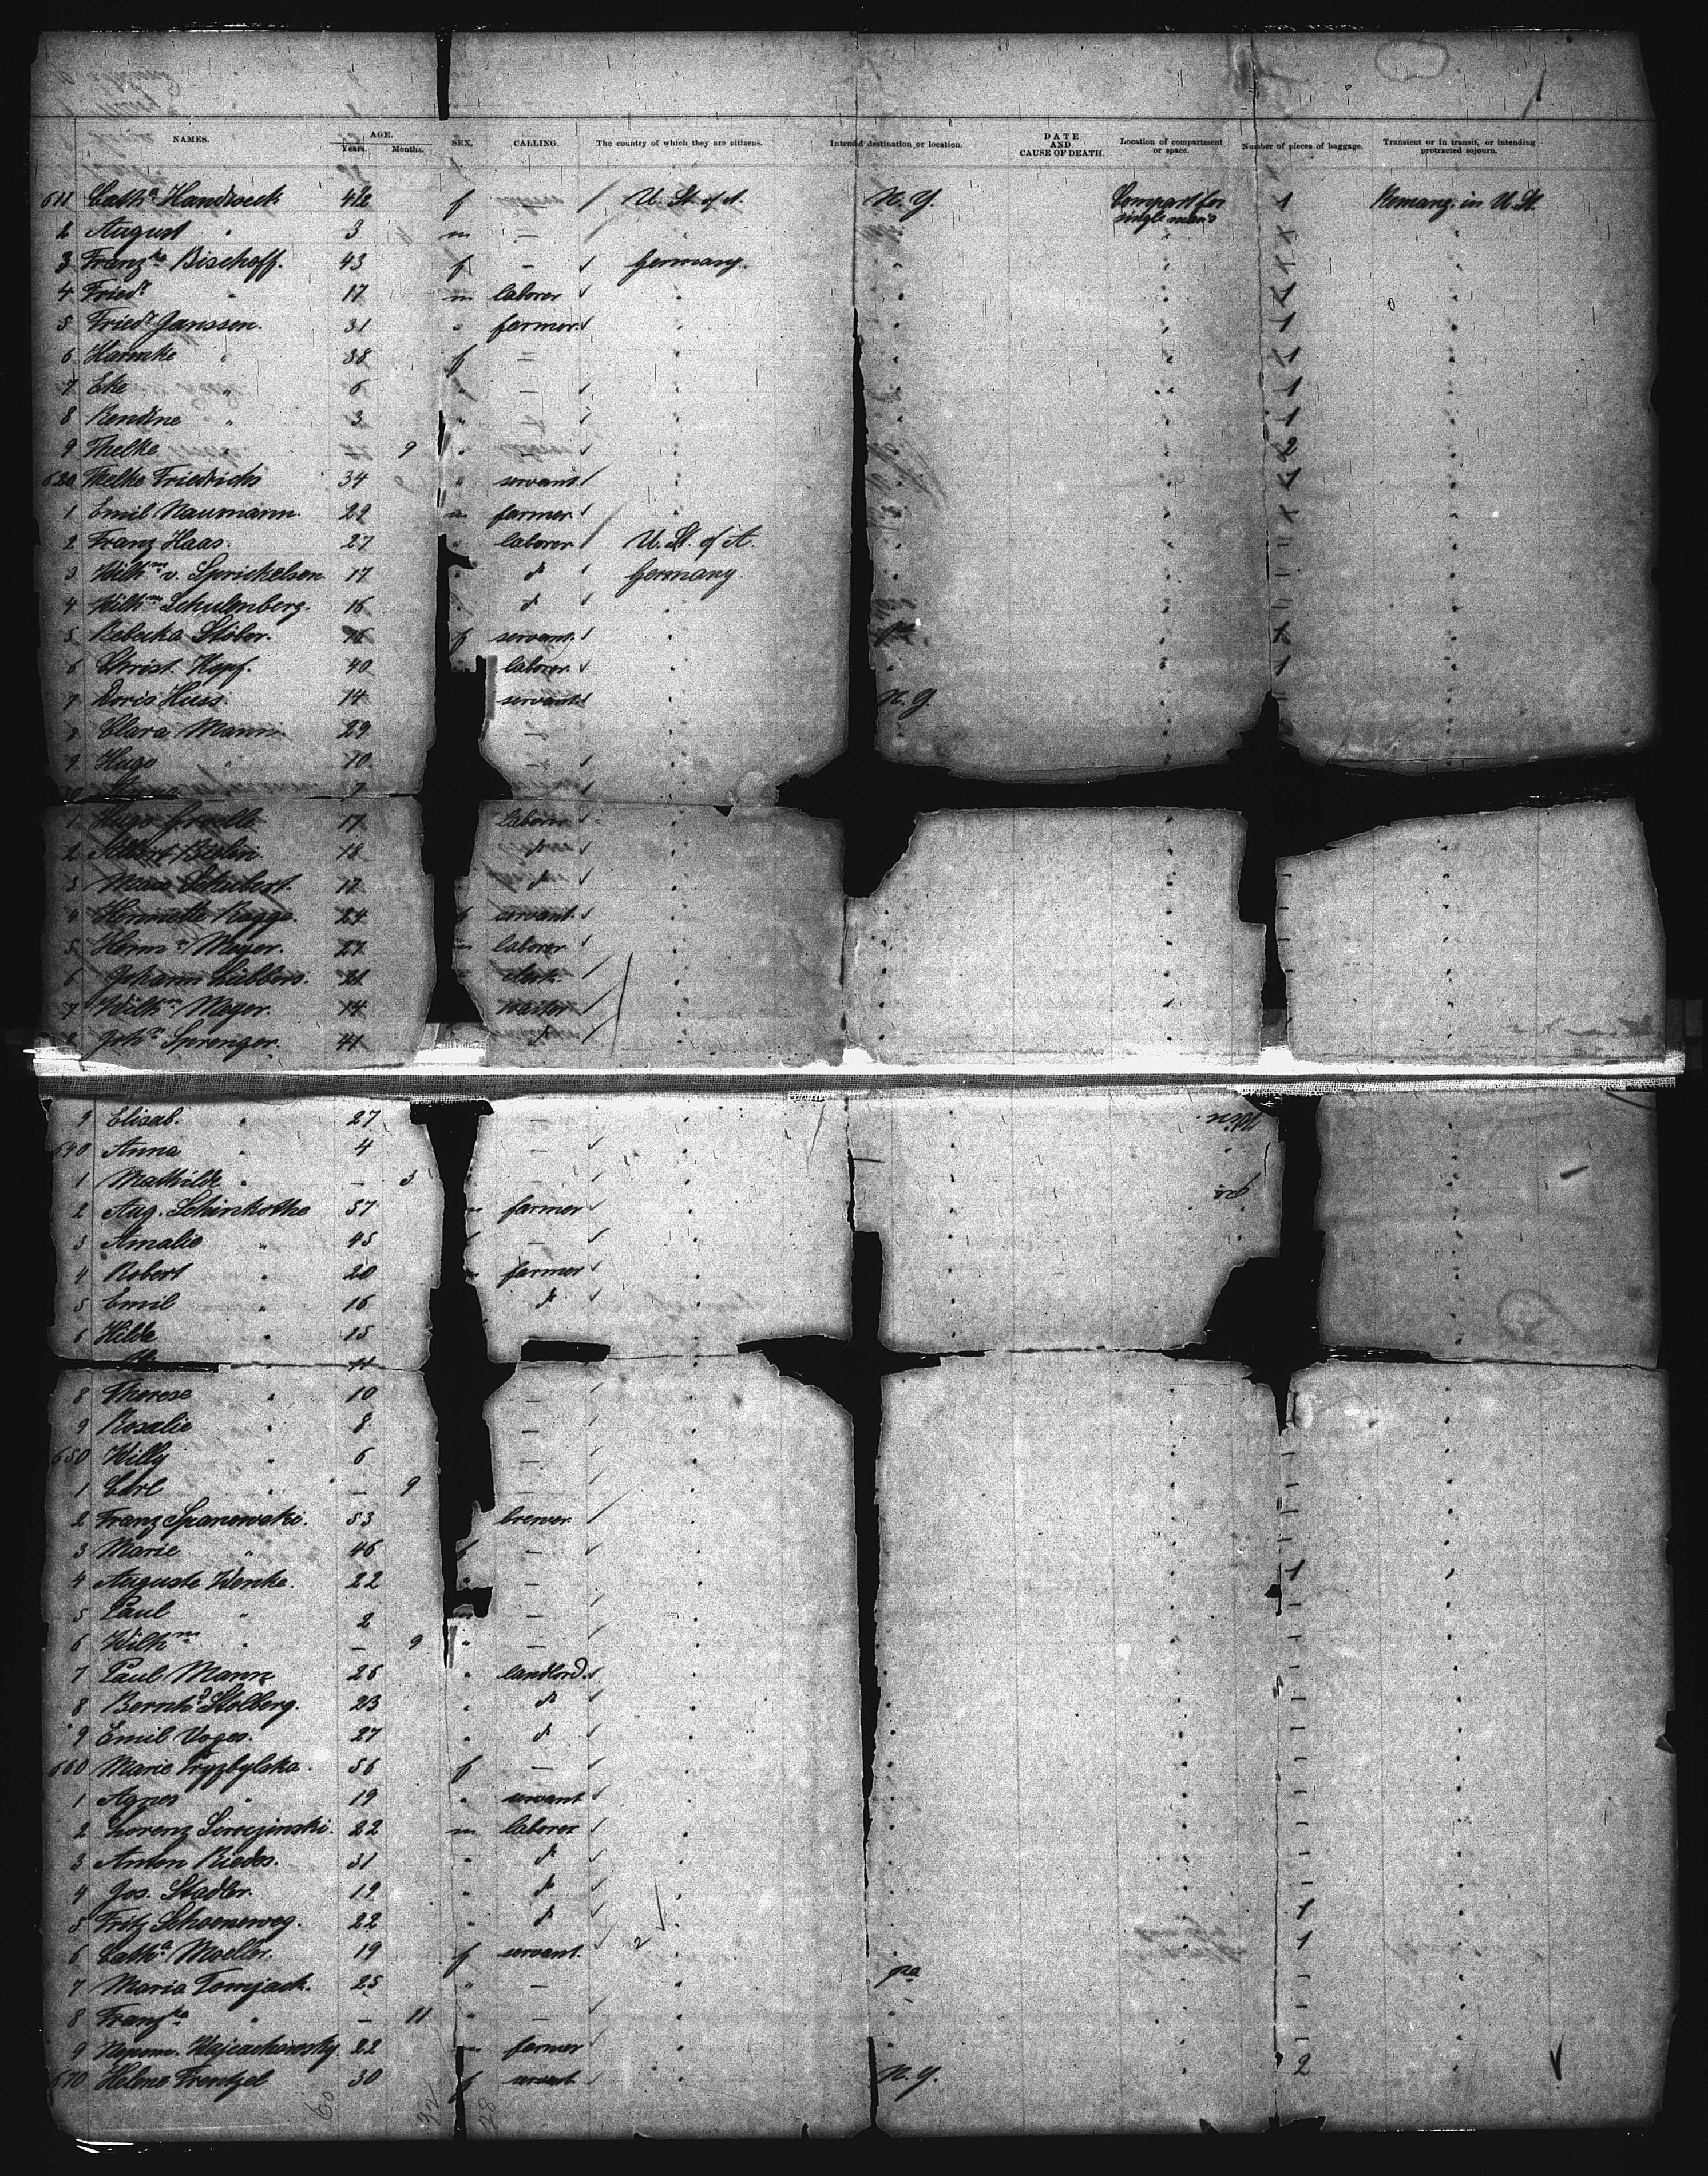 NAMES. AGE. Years. Months. SEX. CALLING. The country of which they are citizens. Intended destination or location. DATE AND CAUSE OF DEATH. Location of compartment or space. Number of pieces of baggage. Transient or in transit, or intending protracted sojourn.
611 Cath.a Handwock 42 f — U. St. of A. N. Y. Compart for single men's 1 Remang. in U. St.
2 August " 3 m —
3 Franz.ka Bischoff. 43 f — Germany.
4 Fried.r " 17 m laborer
5 Fried.r Janssen. 31 " farmer 1
6 Harmke " 38 f — 1
7 Eke " 6 " — 1
8 Rendine " 3 " — 1
9 Thelke 9 " — 2
620 Thelke Friedrichs 34 " servant
1 Emil Naumann. 29 m farmer
2 Franz Haas. 27 " laborer U. St. of A.
3 Wilh.m v. Sprickelsen 17 " do Germany
4 Wilh.m Schulenberg. 16 " do
5 Rebecka Stöber. 16 f servant
6 Christ. Hopf. 40 laborer 1
7 Doris Huss. 14 servant N. Y.
8 Clara Mann. 29 —
9 Hugo " 10 —
30 7
1 Hugo 17 laborer
2 Albert Berlin 18 do
3 Max Schubert. 17 do
4 Henriette Ragge. 24 f servant
5 Herm.n Meyer. 27 m laborer
6 Johann Lübbers. 21 clerk
7 Wilh.m Meyer. 14 waiter
8 Joh.n Sprenger. 41 do
9 Elisab. " 27 —
640 Anna " 4 —
1 Mathilde " — 3 —
2 Aug. Schinkothe 57 m farmer
3 Amalie " 45 —
4 Robert " 20 farmer
5 Emil " 16 do
6 Hilda " 15
11
8 Therese " 10 —
9 Rosalie " 8 —
650 Willy " 6 —
1 Carl " — 9 —
2 Franz Spanowski. 53 brewer
3 Marie " 46 f —
4 Auguste Wenke. 22 " — 1
5 Paul " 2 m —
6 Wilh.m " — 9 " —
7 Paul Mann 26 " landlord
8 Bernh.d Stolberg. 23 " do
9 Emil Voges. 27 " do
660 Marie Pryzbylska. 56 f —
1 Agnes " 19 " servant
2 Lorenz 22 m laborer
3 Anton Riedos. 31 " do
4 Jos. Stadler. 19 " do
5 Fritz Schoeneweg. 22 " do 1
6 Cath.a Moeller. 19 f servant 1
7 Maria Tomjack. 25 " — Pa
8 Franz.ka " — 11 " —
9 Nepom. 22 m farmer
670 Helene Frentzel 30 f servant N. Y. 2
60 32 28